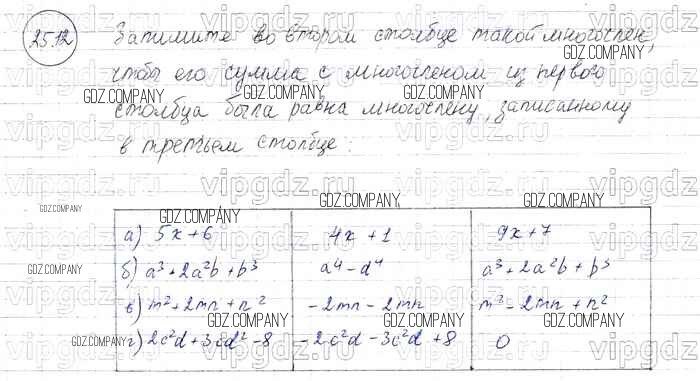 25.12
Запишите во втором столбце такой многочлен,
чтобы его сумма с многочленом из первого
столбца была равна многочлену, записанному
в третьем столбце:
а) 5x+6 4x+1 9x+7
б) a³+2a²b+b³ a⁴-d⁴ a³+2a²b+b³
в) m²+2mn+n² -2mn-2mn m²-2mn+n²
г) 2c²d+3cd²-8 -2c²d-3c²d+8 0
GDZ.COMPANY
vipgdz.ru